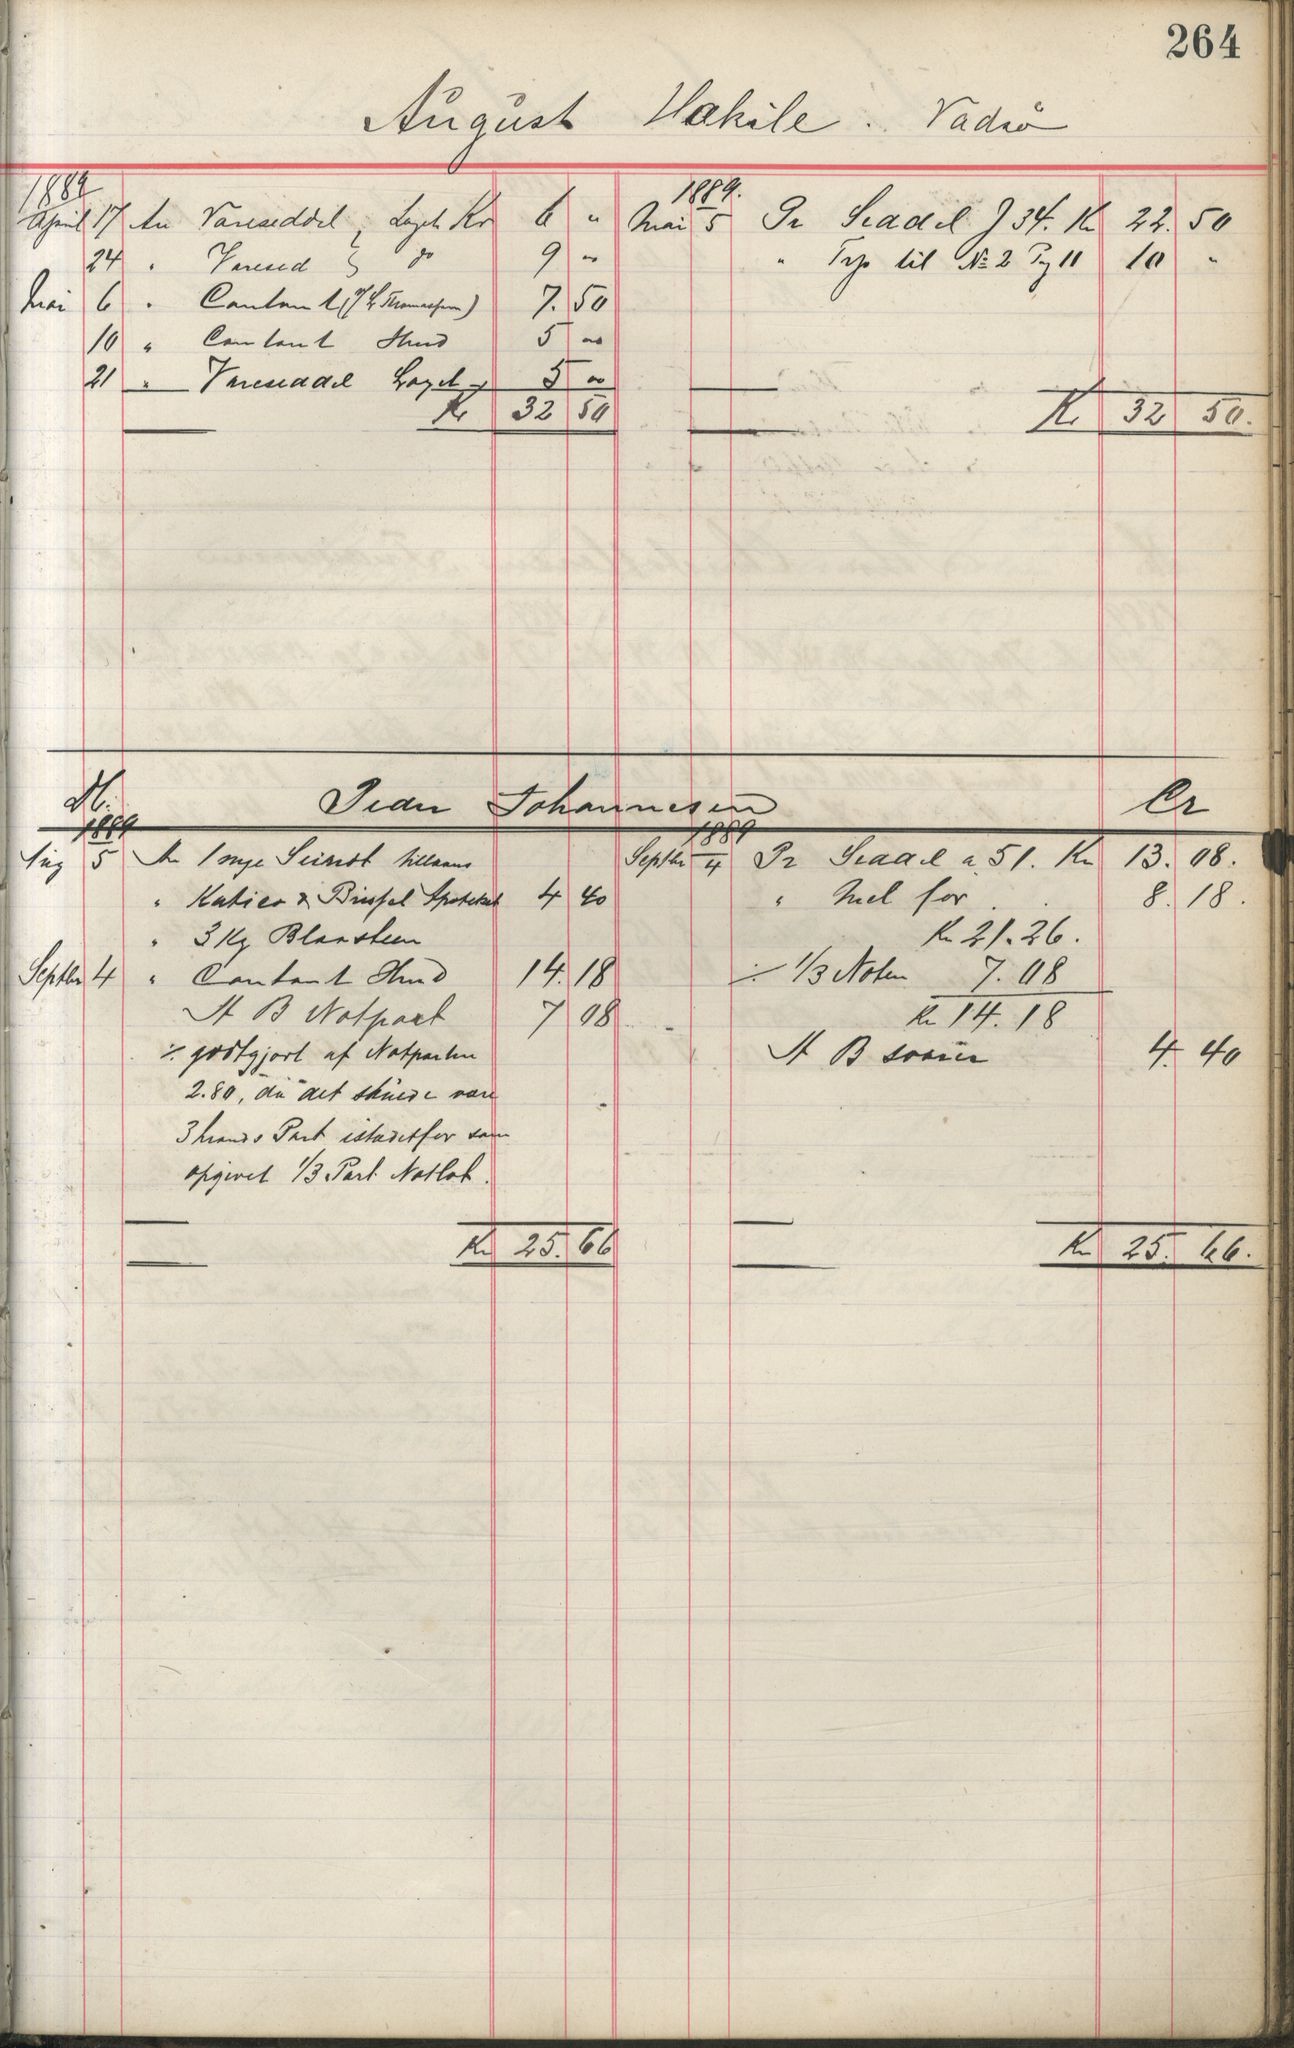 264
August Hakile. Vadsø
1889
April 17 An Vareseddel, Laget Kr 6 "
24 " Varesed " do 9 "
Mai 6 " Contant (Thomassen) 7. 50
10 " Contant Hmd 5 "
21 " Vareseddel Laget 5 "
Kr 32 50
1889.
Mai 5 Pr Seddel J 34. Kr 22. 50
" Trp til No 2 Pg 11 10 "
Kr 32 50.
Dt. Peder Johannesen Cr
1889
Aug 5 An 1 nye tillaans
" & Apoteket 4 40
" 3 Kg Blaasteen
Septbr 4 " Contant Hmd 14. 18
At B Notpart 7 08
÷ godtgjort af Notparten
2.80, da det skulde være
3 mands Part istedetfor som
opgivet 1/3 Part Notlot.
Kr 25. 66
1889
Septbr 4 Pr Seddel a 51. Kr 13. 08.
" Mel for 8. 18.
Kr 21. 26.
÷ 1/3 Noten 7. 08
Kr 14. 18
At B 4. 40
Kr 25. 66.